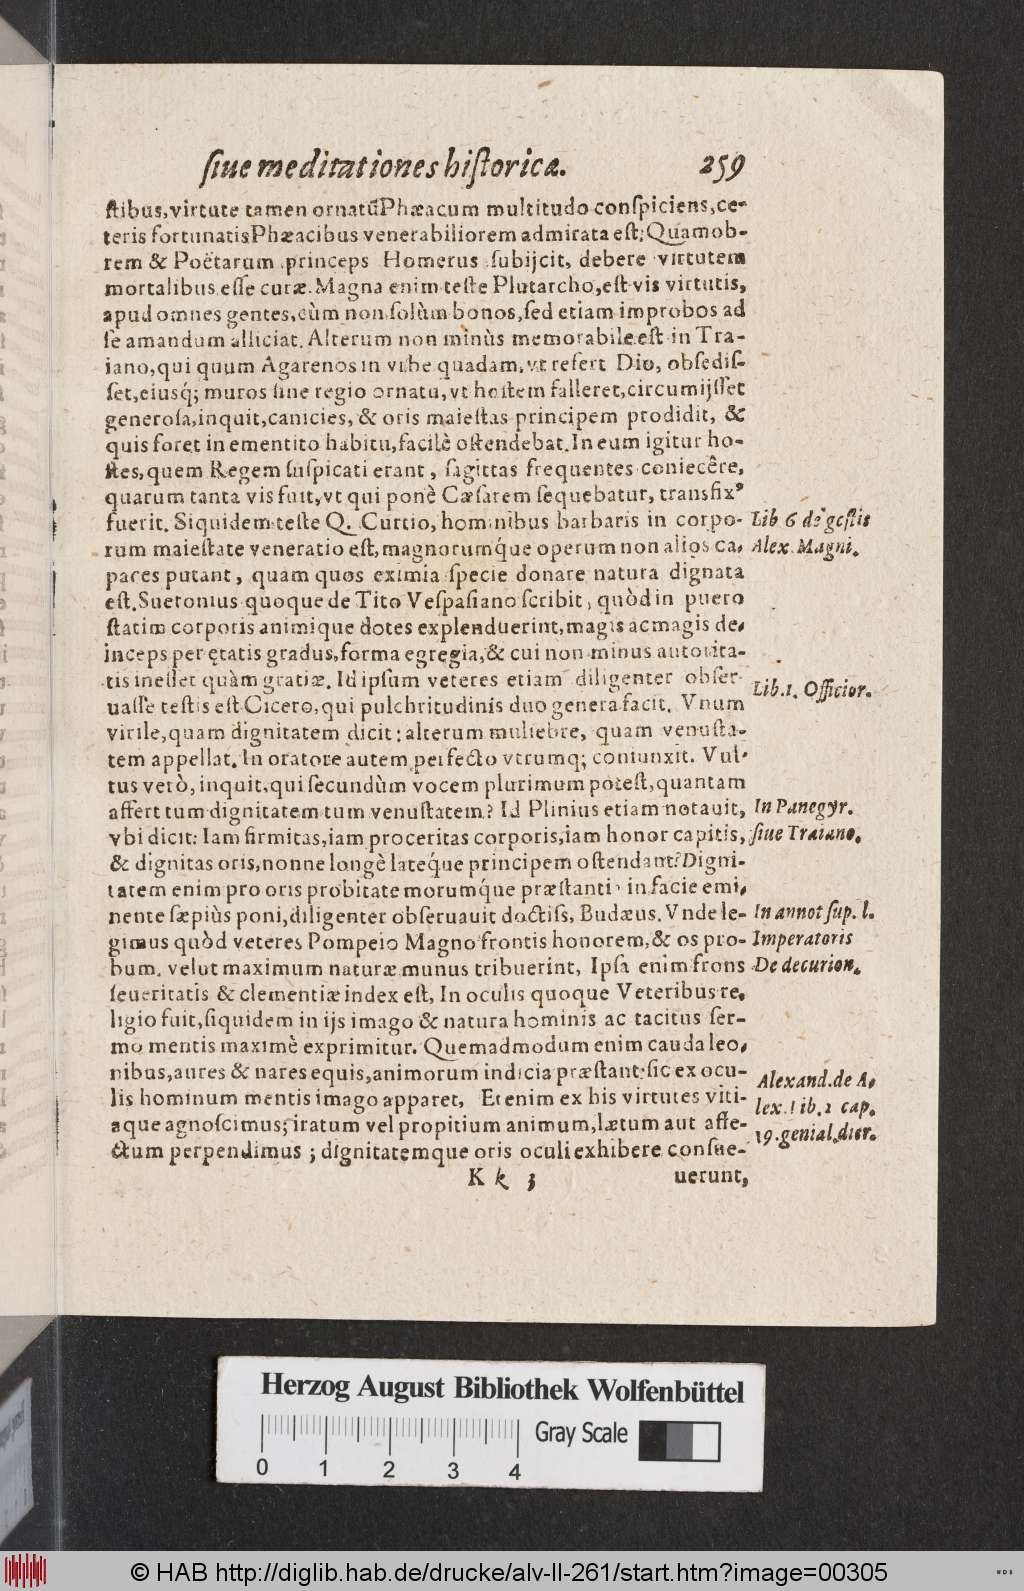 ſiue meditationes hiſtoricæ. 259
ſtibus, virtute tamen ornatũ Phæacum multitudo conſpiciens, ce-
teris fortunatis Phæacibus venerabiliorem admirata eſt: Quamob-
rem & Poëtarum princeps Homerus ſubijcit, debere virtutem
mortalibus eſſe curæ. Magna enim teſte Plutarcho, eſt vis virtutis,
apud omnes gentes, cùm non ſolùm bonos, ſed etiam improbos ad
ſe amandum alliciat. Alterum non minùs memorabile eſt in Tra-
iano, qui quum Agarenos in vrbe quadam, vt refert Dio, obſediſ-
ſet, eiusq́; muros ſine regio ornatu, vt hoſtem falleret, circumijſſet
generoſa, inquit, canicies, & oris maieſtas principem prodidit, &
quis foret in ementito habitu, facilè oſtendebat. In eum igitur ho-
ſtes, quem Regem ſuſpicati erant, ſagittas frequentes coniecêre,
quarum tanta vis fuit, vt qui ponè Cæſarem ſequebatur, transfixꝰ
fuerit. Siquidem teſte Q. Curtio, hominibus barbaris in corpo-
Lib 6 de geſtis
rum maieſtate veneratio eſt, magnorumq́ue operum non alios ca-
Alex. Magni.
paces putant, quam quos eximia ſpecie donare natura dignata
eſt. Suetonius quoque de Tito Veſpaſiano ſcribit, quòd in puero
ſtatim corporis animique dotes explenduerint, magis ac magis de-
inceps per ętatis gradus, forma egregia, & cui non minus autorita-
tis ineſſet quàm gratiæ. Id ipſum veteres etiam diligenter obſer-
Lib. 1. Officior.
uaſſe teſtis eſt Cicero, qui pulchritudinis duo genera facit. Vnum
virile, quam dignitatem dicit: alterum muliebre, quam venuſta-
tem appellat. In oratore autem perfecto vtrumq; coniunxit. Vul-
tus verò, inquit, qui ſecundùm vocem plurimum poteſt, quantam
affert tum dignitatem tum venuſtatem? Id Plinius etiam notauit,
In Panegyr.
vbi dicit: Iam firmitas, iam proceritas corporis, iam honor capitis,
ſiue Traiano.
& dignitas oris, nonne longè lateq́ue principem oſtendant? Digni-
tatem enim pro oris probitate morumq́ue præſtanti in facie emi-
nente ſæpiùs poni, diligenter obſeruauit doctiſs, Budæus. Vnde le-
In annot ſup. l.
gimus quòd veteres Pompeio Magno frontis honorem, & os pro-
Imperatoris
bum, velut maximum naturæ munus tribuerint, Ipſa enim frons
De decurion.
ſeueritatis & clementiæ index eſt, In oculis quoque Veteribus re-
ligio fuit, ſiquidem in ijs imago & natura hominis ac tacitus ſer-
mo mentis maximè exprimitur. Quemadmodum enim cauda leo-
nibus, aures & nares equis, animorum indicia præſtant: ſic ex ocu-
Alexand. de A-
lis hominum mentis imago apparet, Etenim ex his virtutes viti-
lex. lib. 2 cap.
aque agnoſcimus; iratum vel propitium animum, lætum aut affe-
19. genial. dier.
ctum perpendimus; dignitatemque oris oculi exhibere conſue-
K k 3 uerunt,
Herzog August Bibliothek Wolfenbüttel
Gray Scale
0 1 2 3 4
© HAB http://diglib.hab.de/drucke/alv-ll-261/start.htm?image=00305